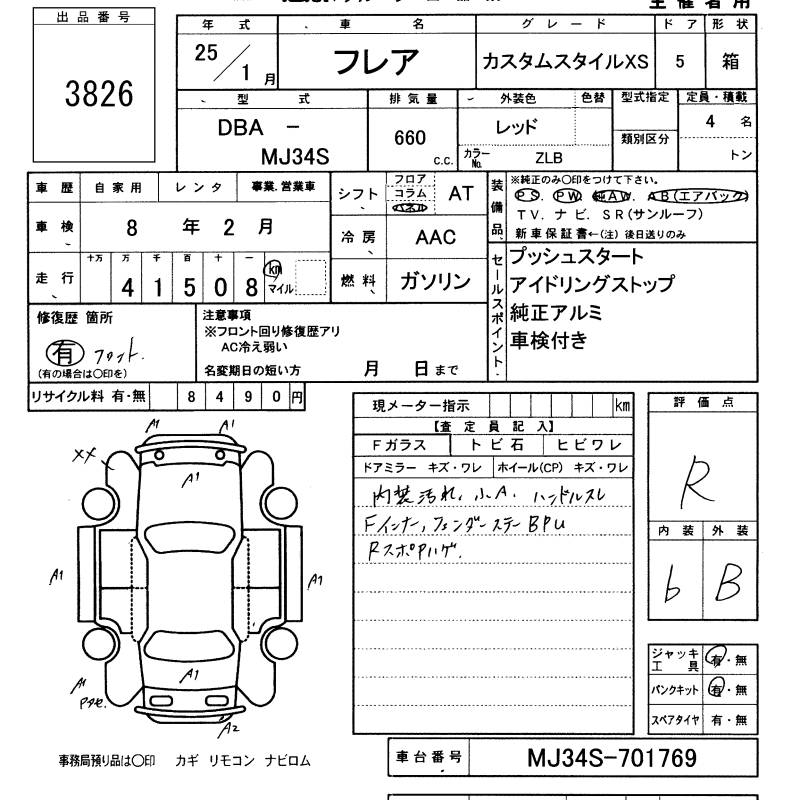 主催者用
出品番号
3826
年式 車名 グレード ドア 形状
25/1月 フレア カスタムスタイルXS 5 箱
型式 排気量 外装色 色替 型式指定 定員・積載
DBA - MJ34S 660 c.c. レッド 類別区分 4 名
カラーNo. ZLB トン
車歴 自家用 レンタ 事業.営業車
車検 8 年 2 月
走行 十万 万 千 百 十 一
41508 km マイル
シフト フロア コラム パネル AT
冷房 AAC
燃料 ガソリン
装備品
※純正のみ○印をつけて下さい。
PS. PW. 純AW. AB(エアバック)
TV. ナビ. SR(サンルーフ)
新車保証書←(注) 後日送りのみ
セールスポイント
プッシュスタート
アイドリングストップ
純正アルミ
車検付き
修復歴 箇所
有 フロント.
(有の場合は○印を)
注意事項
※フロント回り修復歴アリ
AC冷え弱い
名変期日の短い方 月 日まで
リサイクル料 有・無 8490円
現メーター指示 km
【査定員記入】
Fガラス トビ石 ヒビワレ
ドアミラー キズ・ワレ ホイール(CP) キズ・ワレ
内装汚れ、小A. ハンドルスレ
Fインナー,フェンダーステーBPU
RスポPハゲ.
評価点
R
内装 外装
b B
ジャッキ工具 有・無
パンクキット 有・無
スペアタイヤ 有・無
A1 A1
XX
A1
A1 A1
A1
A1
A2
事務局預り品は○印 カギ リモコン ナビロム
車台番号 MJ34S-701769